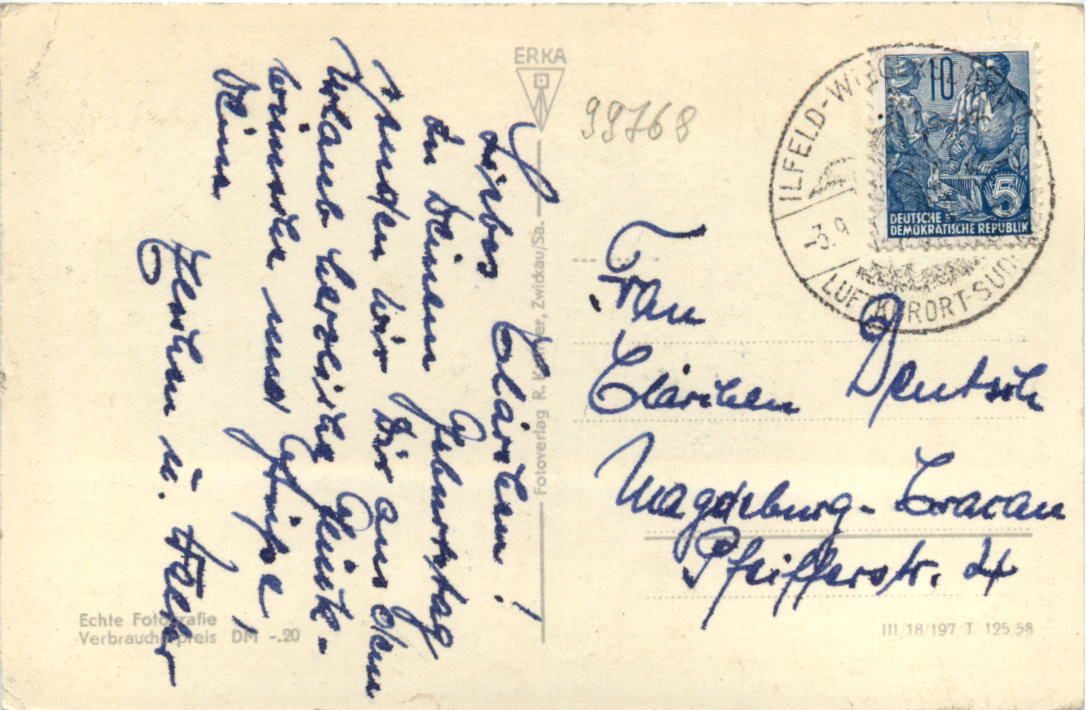 Liebes Clärchen!
Zu Deinem Geburtstag
senden wir Dir aus dem
Urlaub herzliche Glück-
wünsche und Grüße!
Deine
u.
ERKA
Fotoverlag R. Zwickau/Sa.
Echte Fotografie
Verbraucherpreis DM -.20
99768
10
5
DEUTSCHE
DEMOKRATISCHE REPUBLIK
ILFELD-
-3.9
LUFTKURORT-SÜD
Frau
Clärchen Deutsch
Magdeburg-Cracau
Pfeifferstr. 4
III/18/197 T 125.58